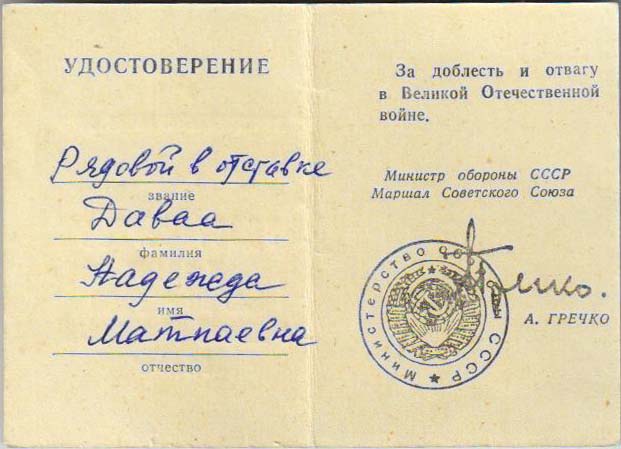 УДОСТОВЕРЕНИЕ
Рядовой в отставке
звание
Даваа
фамилия
Надежда
имя
Матпаевна
отчество
За доблесть и отвагу
в Великой Отечественной
войне.
Министр обороны СССР
Маршал Советского Союза
Министерство обороны СССР
Гречко.
А. ГРЕЧКО